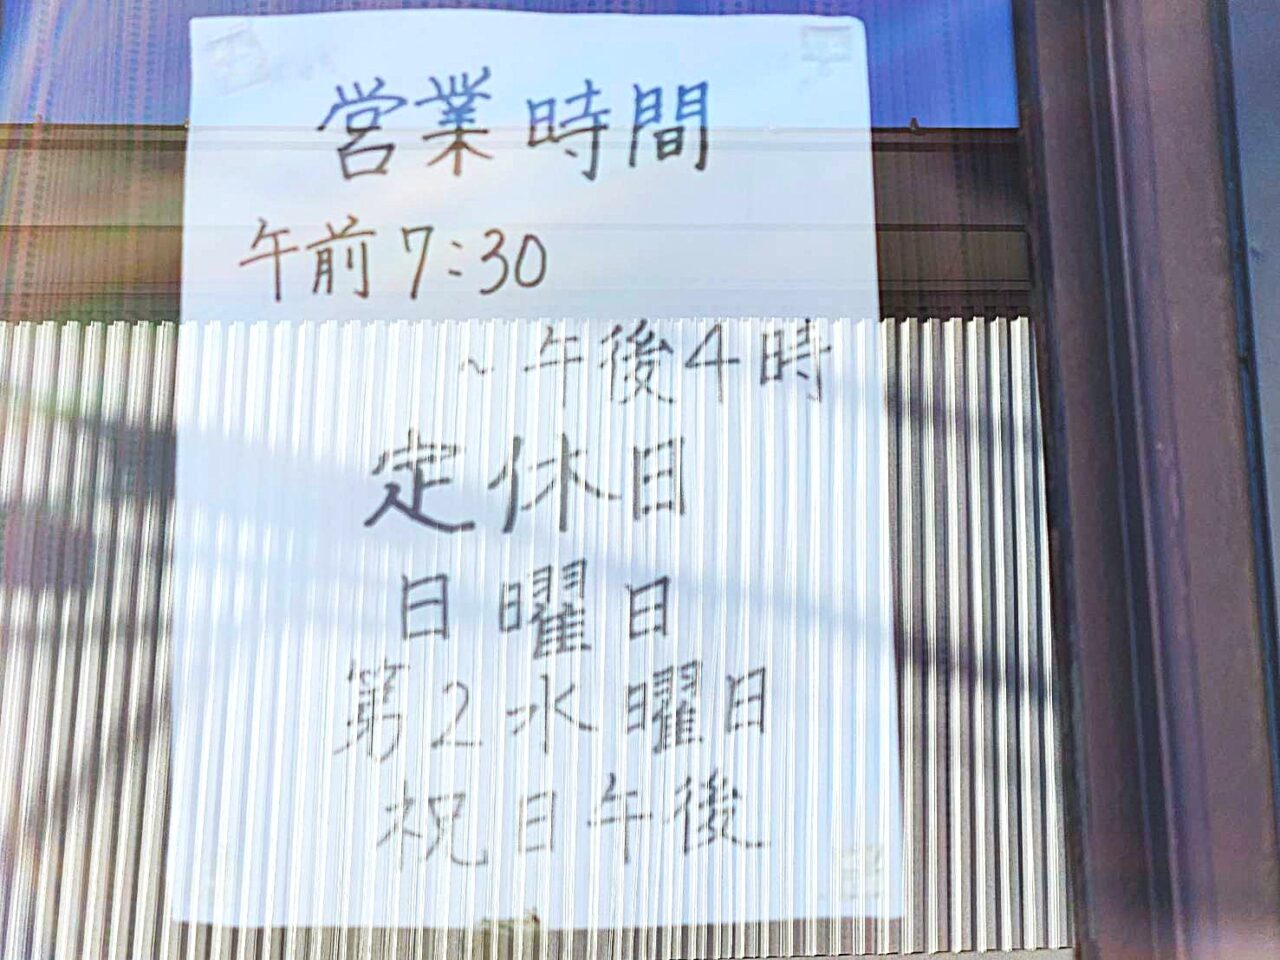 営業時間
午前7:30
～午後4時
定休日
日曜日
第2水曜日
祝日午後